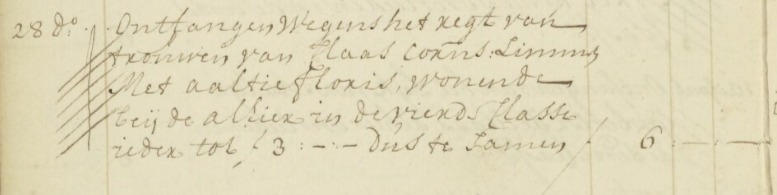 28 do. Ontfangen Wegens het regt van
trouwen van Klaas Corns: Limmes
Met aaltie floris, wonende
beijde alhier in de vierde Classe
ieder tot f 3:-:- Dus te Samen 6:-:-